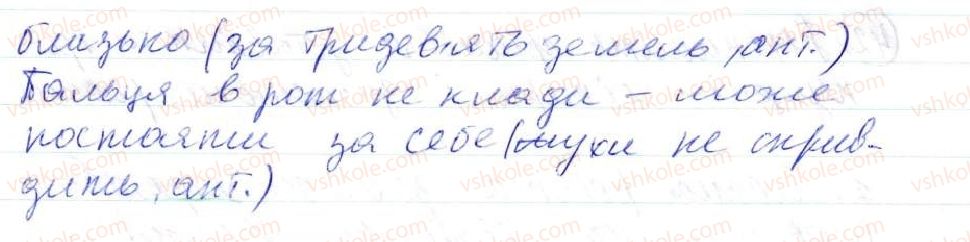 близько (за тридев'ять земель, ант.)
Пальця в рот не клади – може
постояти за себе (мухи не скрив-
дить, ант.)